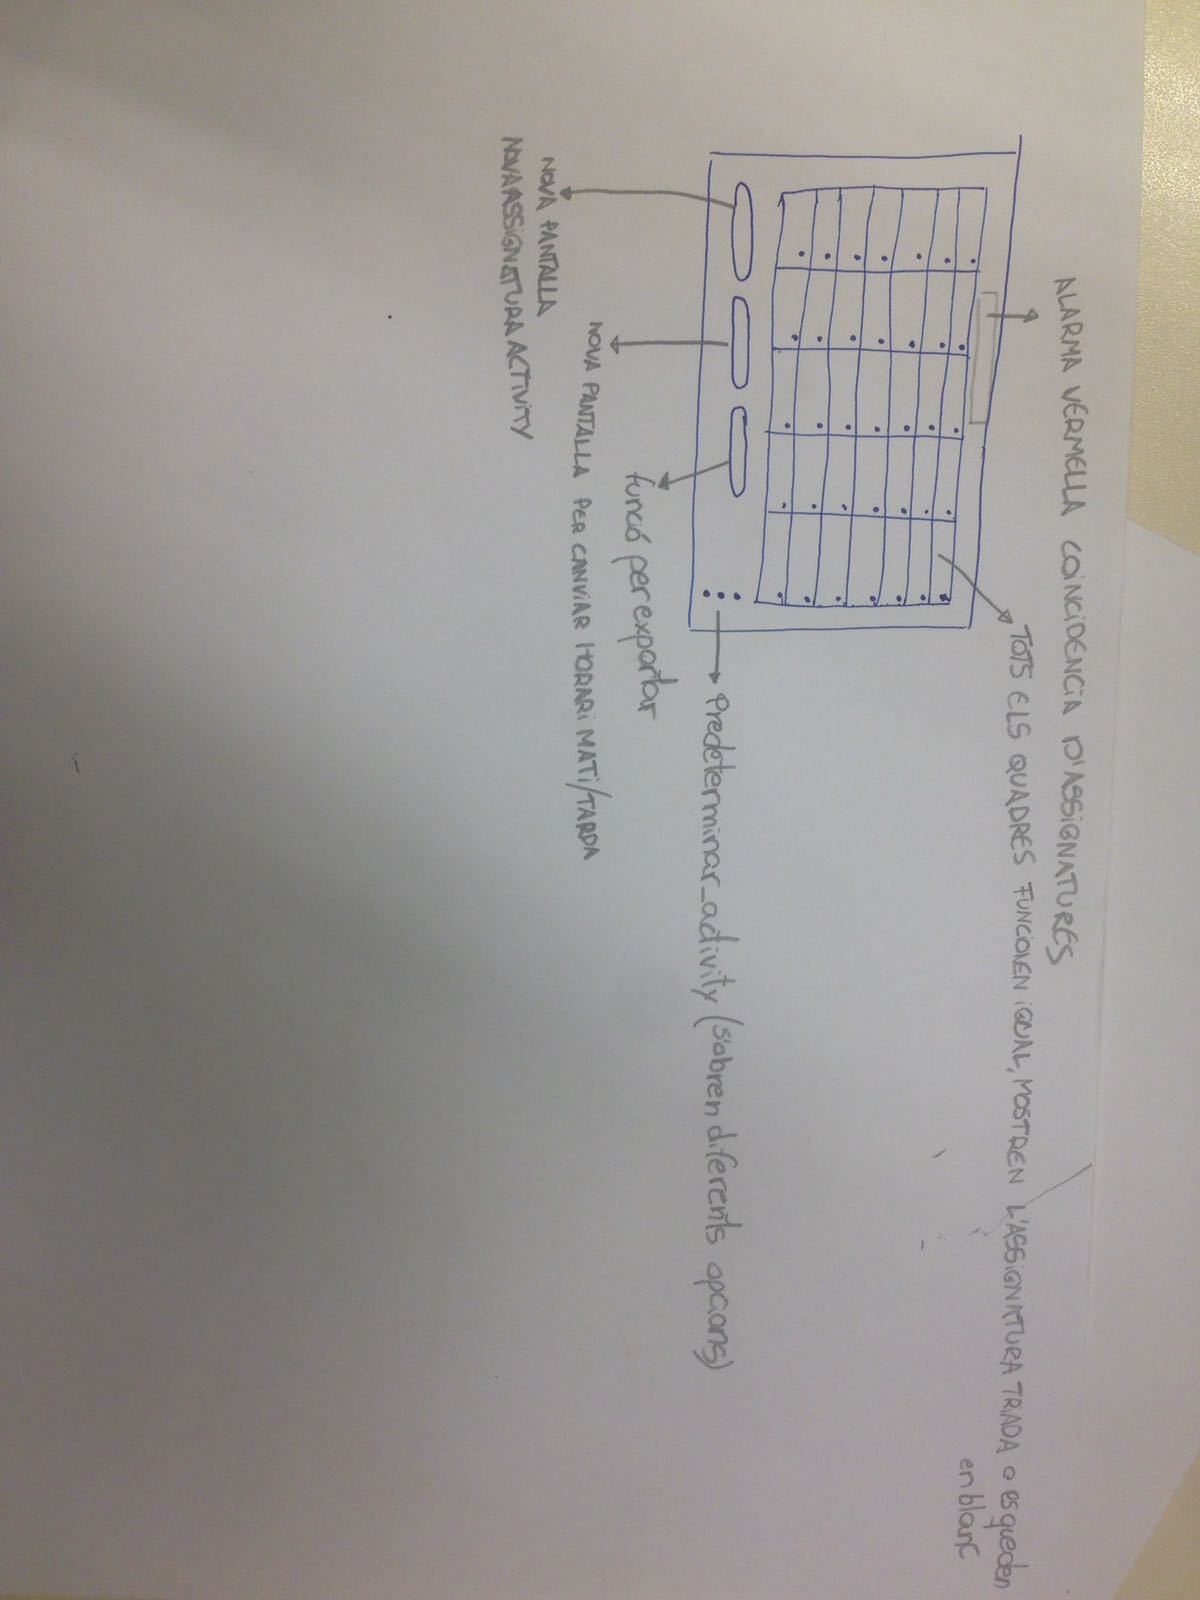 ALARMA VERMELLA COINCIDENCIA D'ASSIGNATURES
TOTS ELS QUADRES FUNCIONEN IGUAL, MOSTREN L'ASSIGNATURA TRIADA o es queden
en blanc
Predeterminar_activity (s'obren diferents opcions)
funció per exportar
NOVA PANTALLA PER CANVIAR HORARI MATI/TARDA
NOVA PANTALLA
NOVA ASSIGNATURA ACTIVITY